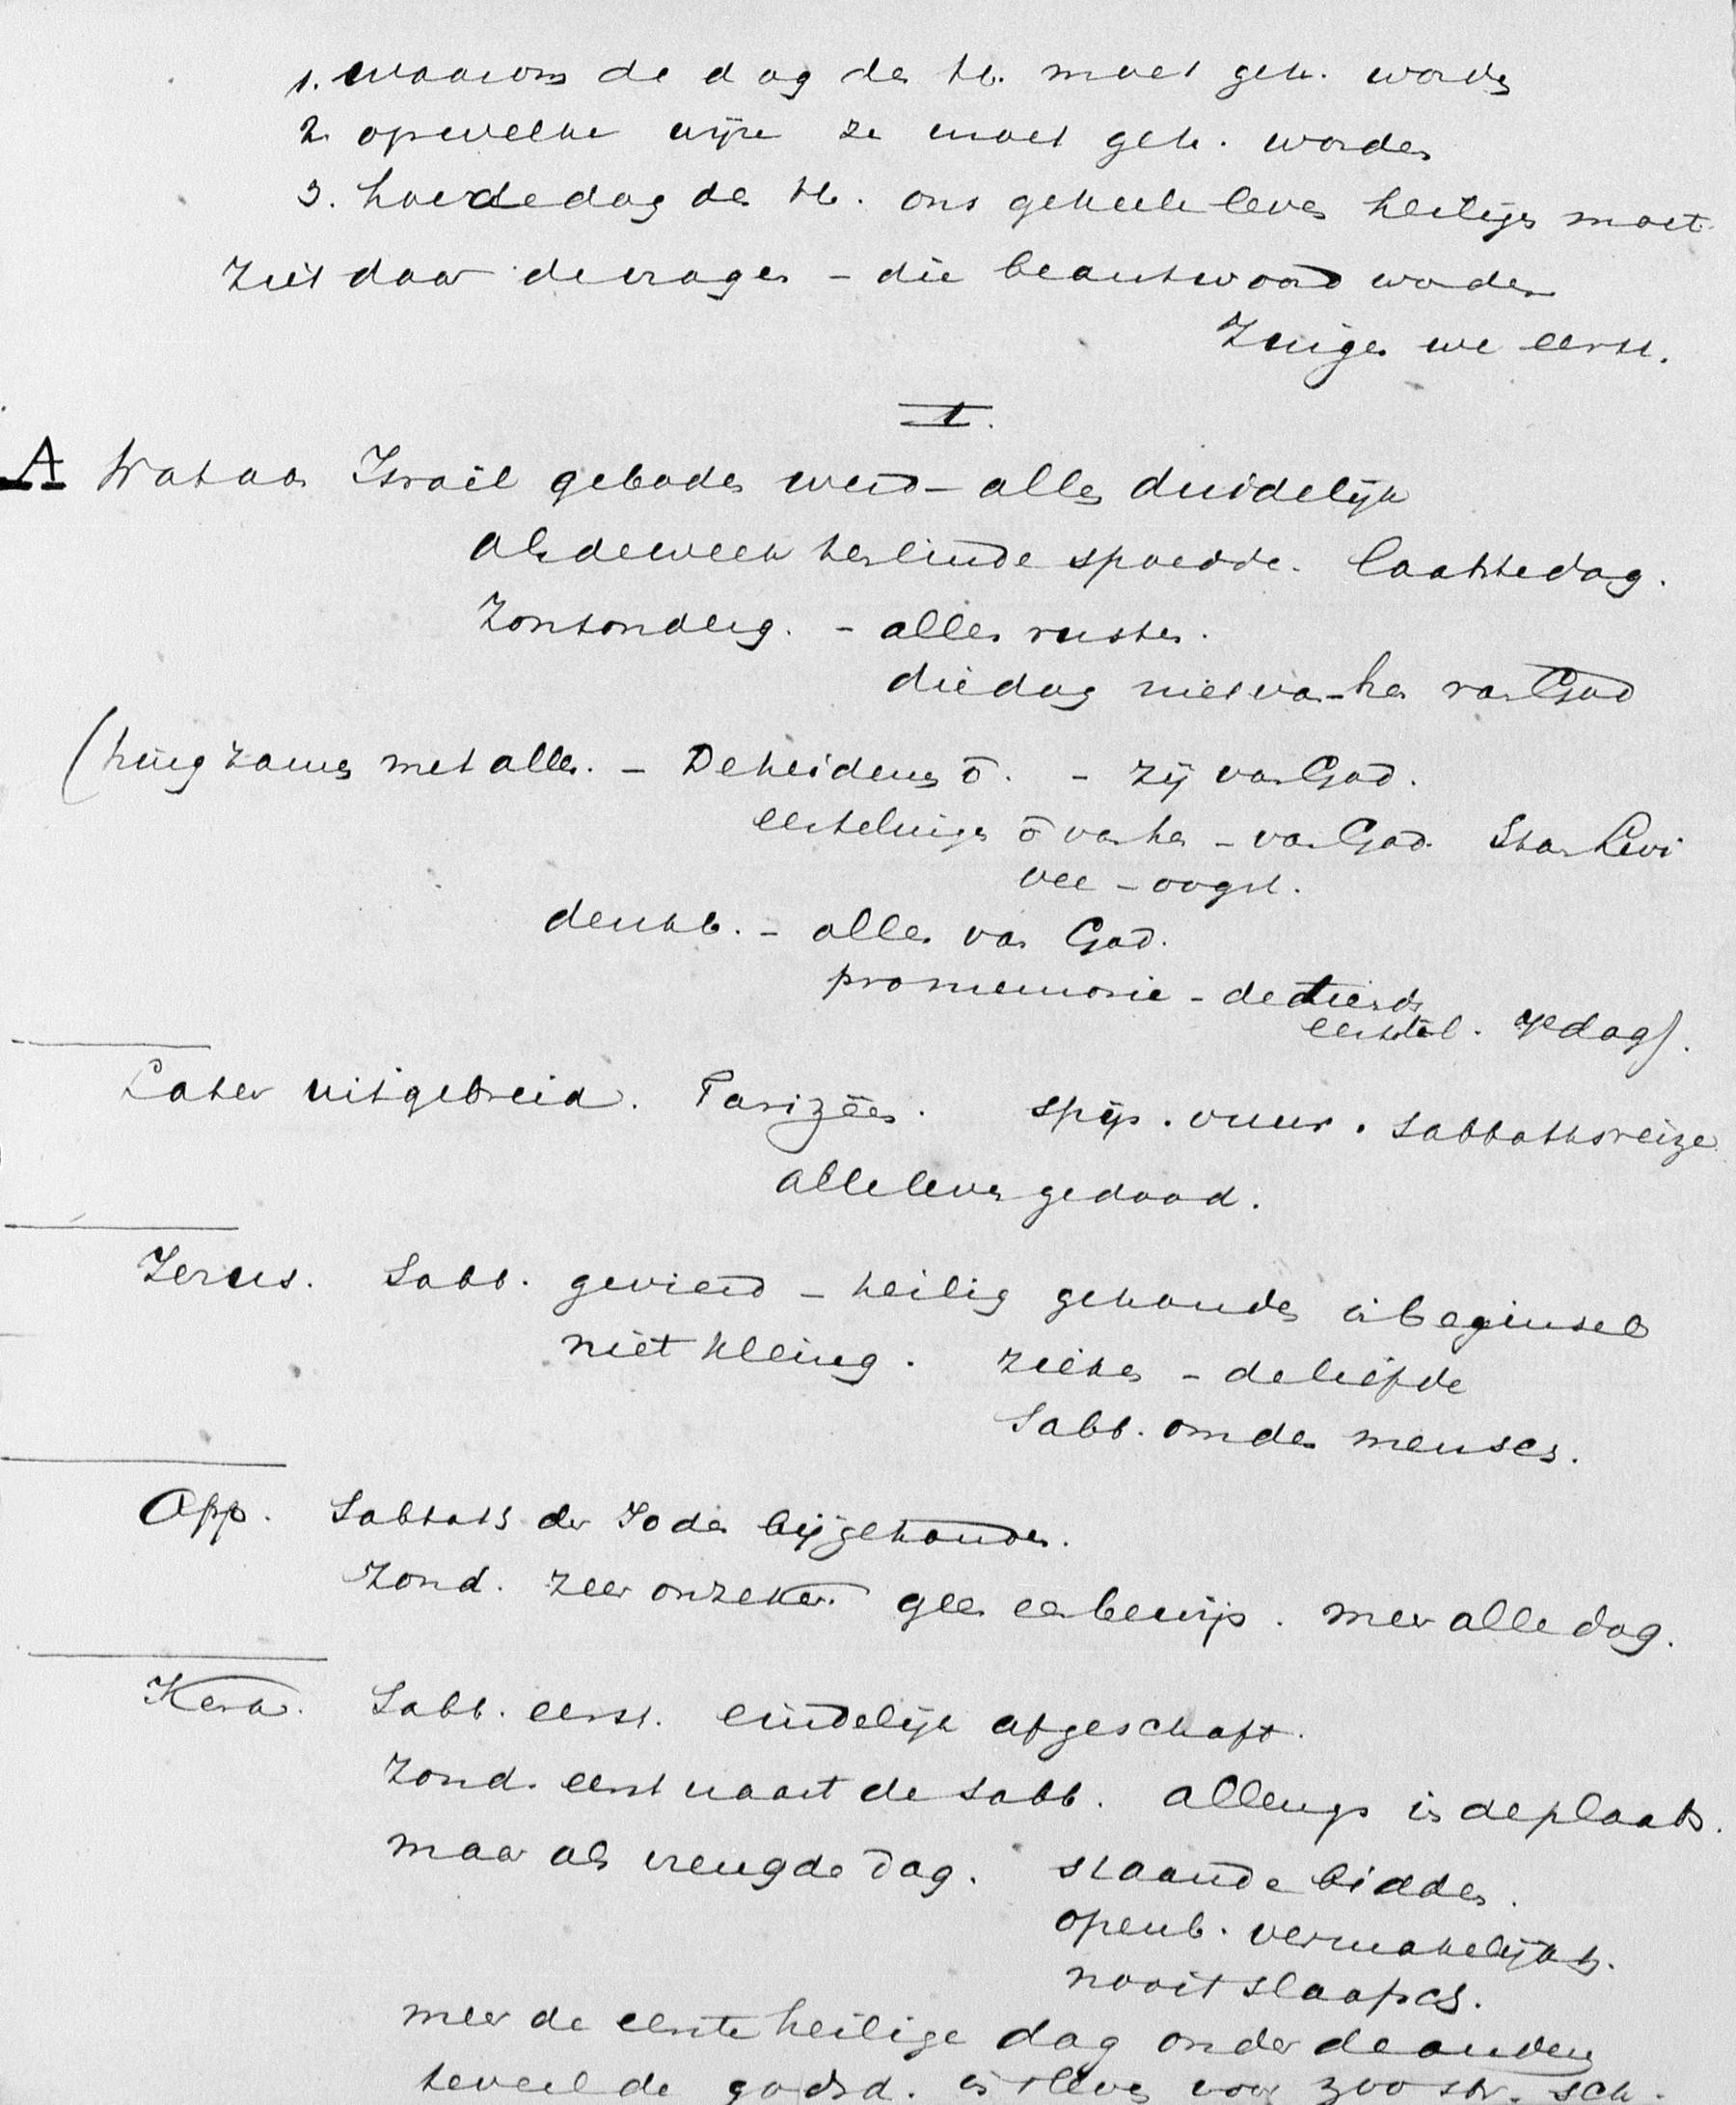 1. waarom de dag des H. moet geh. worden
2. op welke wijze ze moet geh. worden
3. hoe de dag des H. ons geheele leven heiligen moet
Ziet daar de vragen - die beantwoord worden
Zingen we eerst.
I.
A Wat aan Israël geboden werd - alles duidelijk
als de week ten einde spoedde. laatste dag.
Zonsonderg. - alles rusten.
die dag niet van hen van God
(hing samen met alles. - De heidenen ō. - zij van God.
eerstelingen ō van hen - van God. Stam Levi
vee - oogst.
denkb. - alles van God.
pro memorie - de tiende
eerstel. 7e dag).
Later uitgebreid. Farizëen. spijs. vuur. sabbathsreize
alle leven gedood.
Jezus. Sabb. gevierd - heilig gehouden in beginsel
niet kleing. zieken - de liefde
Sabb. om den mensch.
App. Sabbath der Joden bijgehouden.
Zond. zeer onzeker. geen eer bewijs. meer alle dag.
Kerk. Sabb. eerst. eindelijk afgeschaft.
Zond. eerst naast de sabb. allengs in de plaats.
maar als vreugde dag. staande bidden.
openb. vermakelijkh.
nooit slaafsch.
meer de eerste heilige dag onder de anderen
terwijl de godsd. in leven voor zoo str. sch.